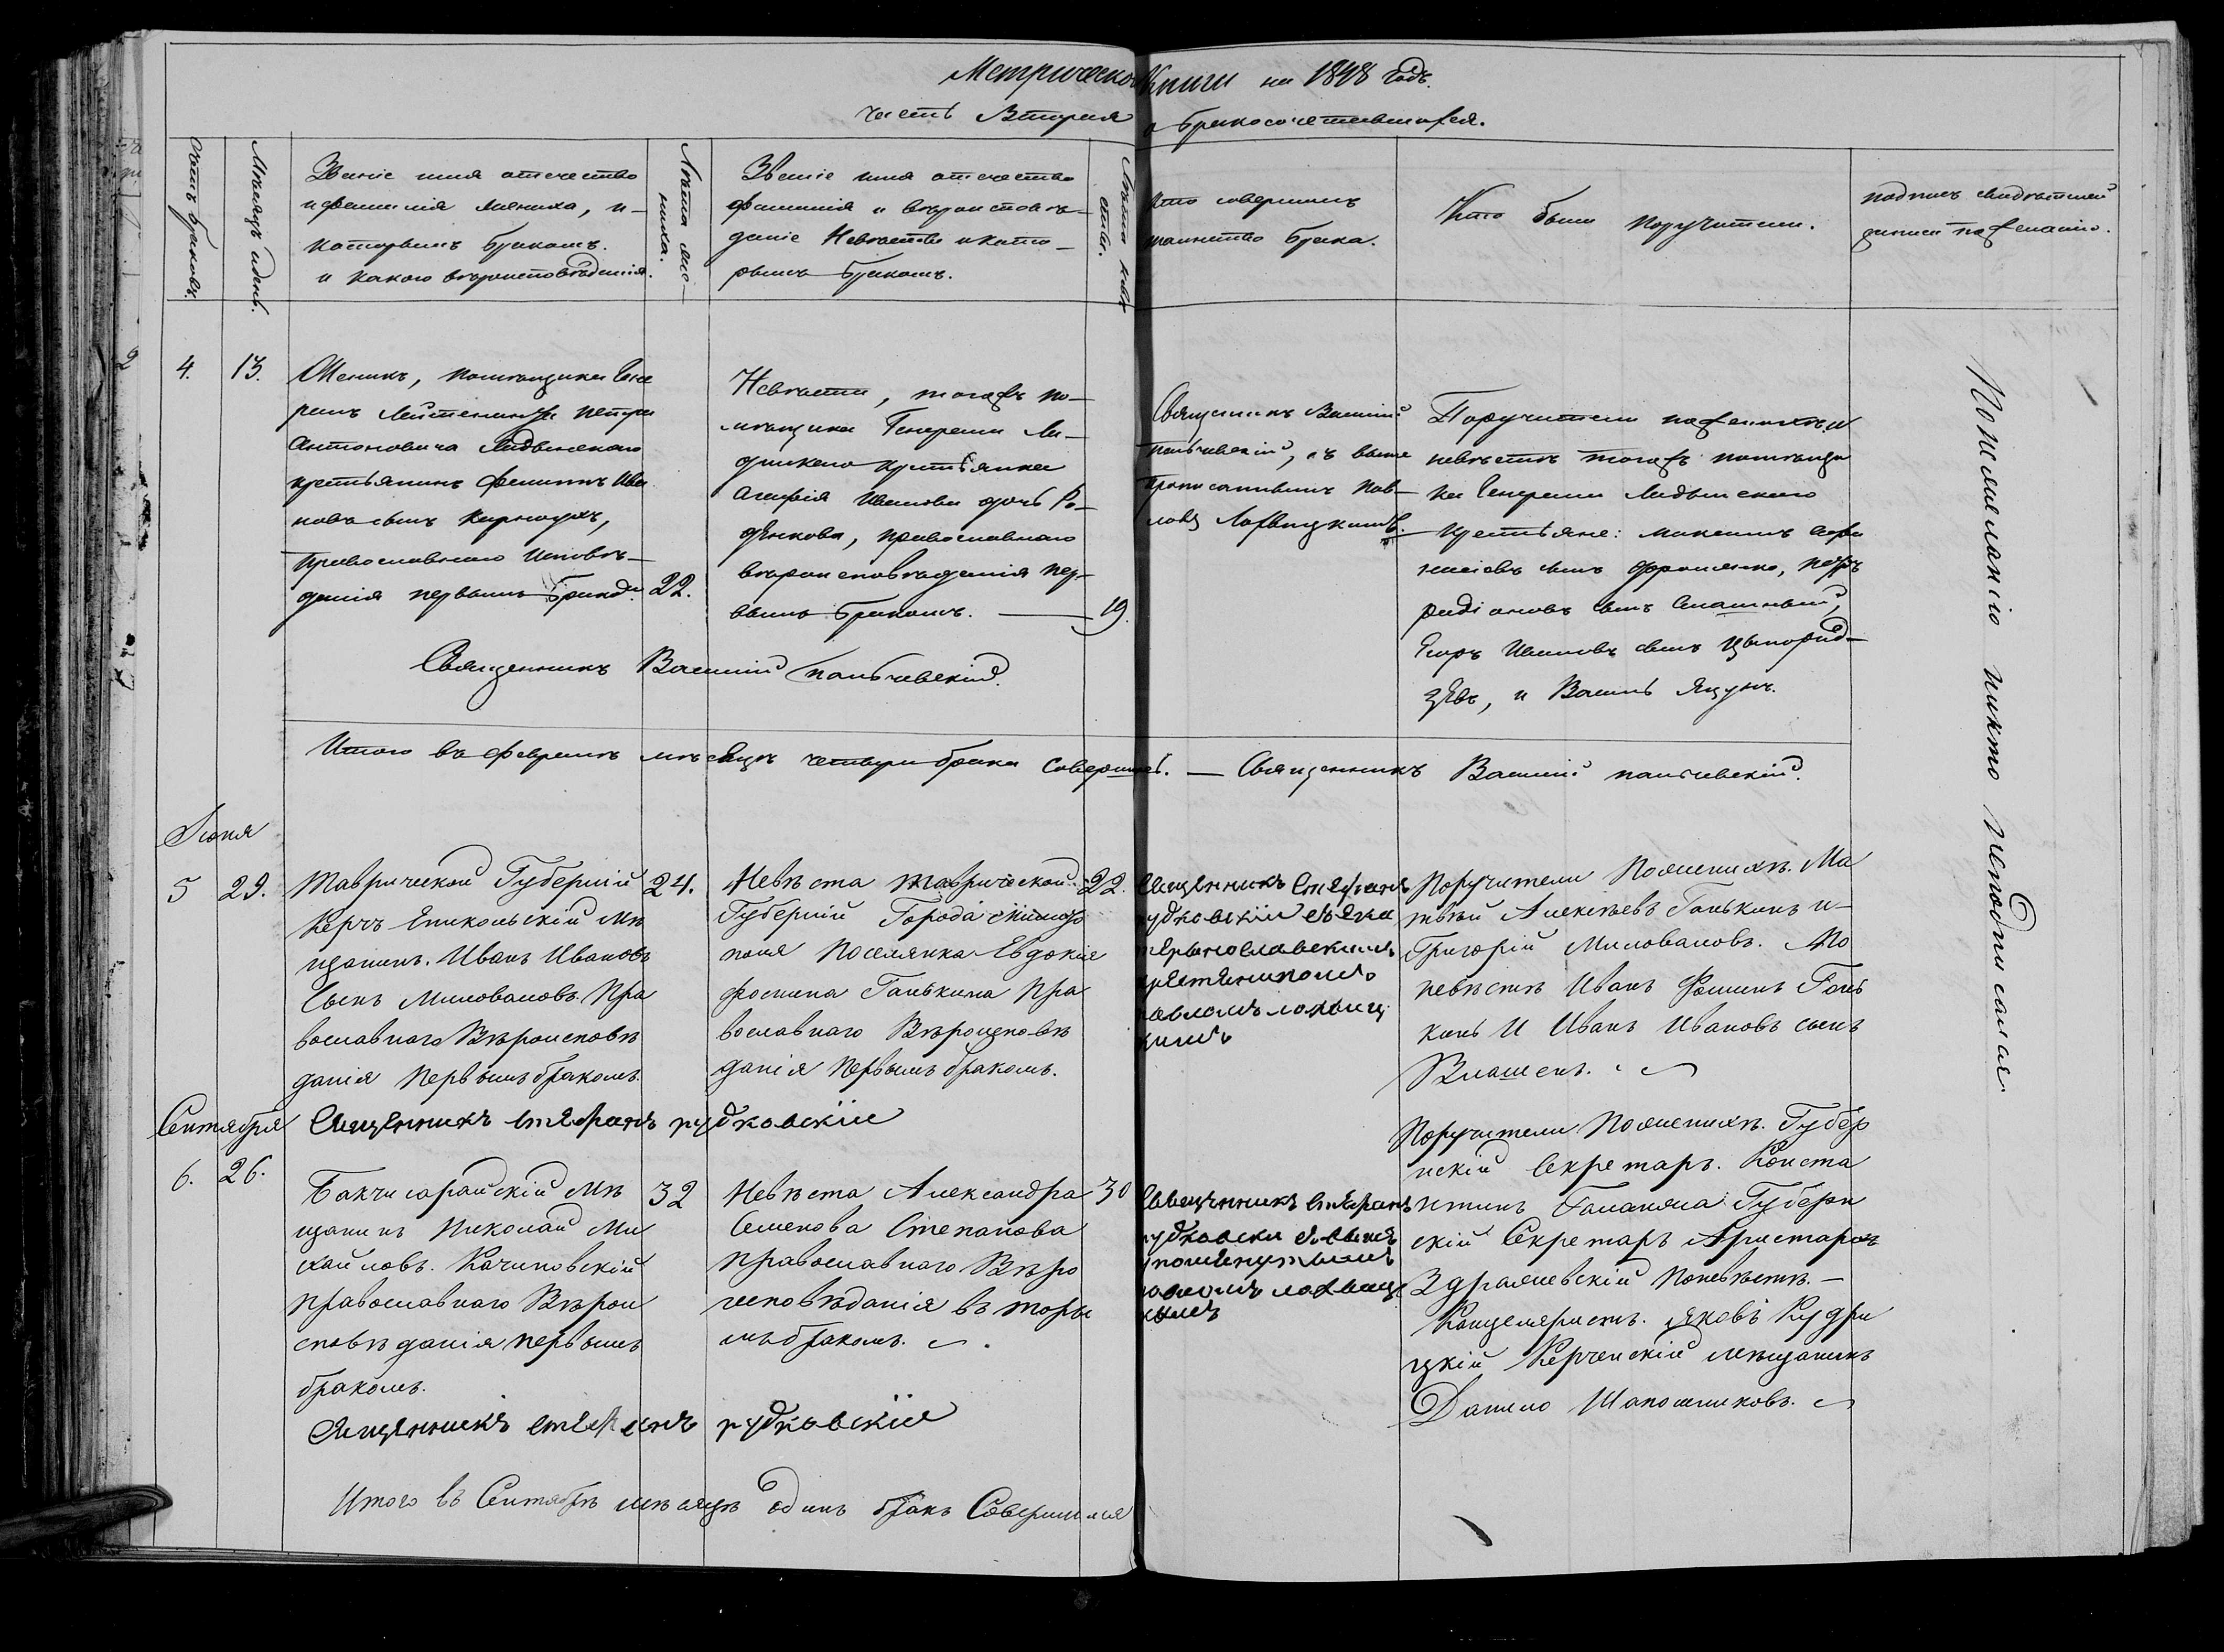 Метрической Книги на 1848 годъ.
часть Вторая о бракосочетавшихся.
Счетъ браковъ.
Мѣсяцъ и день.
Званіе имя отечество
и фамилія жениха, и
которымъ бракомъ.
и какого вѣроисповѣданія.
Лѣта же-
ниха.
Званіе имя отечество
фамилія и вѣроисповѣ-
даніе Невѣсты и кото-
рымъ бракомъ.
Лѣта невѣ
сты.
Кто совершилъ
таинство брака.
Кто были поручители.
подпись свидѣтелей
записи по желанію.
4. 13.
Женихъ, помѣщика Гене
ралъ Лейтенанта Петра
Антоновича
крестьянинъ Филиппъ Ива
новъ сынъ
православнаго исповѣ-
данія первымъ бракомъ. 22.
Невѣста, тогожъ по-
мѣщика Генерала
крестьянка
Агафія Иванова дочь Ро-
дѣнкова, православнаго
вѣроисповѣданія пер-
вымъ бракомъ. — 19.
Священникъ Василій
Пальчевскій, съ выше
прописаннымъ Пав-
ломъ Лохвицкимъ.
Поручители по женихѣ и
невѣстѣ тогожъ помѣщи
ка Генерала
крестьяне: Максимъ
сынъ Петръ
Радіоновъ сынъ
Егоръ Ивановъ сынъ
и Василь Яцунъ.
Священникъ Василій Пальчевскій.
Итого въ февралѣ мѣсяцѣ четыри брака совершено. — Священникъ Василій Пальчевскій.
По желанію никто неподписался.
Іюня
5 29.
Таврической Губерній 24.
Керчь Еникольскій мѣ
щанинъ. Иванъ Ивановъ
Сынъ Миловановъ. Пра
вославнаго Вѣроисповѣ
данія Первымъ бракомъ.
Невѣста Таврической 22.
Губерній Города
поля Поселянка Евдокія
Фомина Ганькина Пра
вославнаго Вѣроисповѣ
данія Первымъ бракомъ.
Священникъ Стефанъ
рудковскій съ Ека
теринославскимъ
павломъ лохвиц
кимъ
Поручители По женихѣ. Ма
твѣй Алексѣевъ Ганькинъ и
Григорій Миловановъ. По
невѣстѣ Иванъ Фоминъ Гань
кинъ И Иванъ Ивановъ сынъ
Влашенъ.
Сентября
Священникъ Стефанъ рудковскій
6. 26.
Бакчисарайскій мѣ 32
щанинъ Николай Ми
хайловъ. Качиновскій
православнаго Вѣрои
сповѣданія первымъ
бракомъ.
Невѣста Александра 30
Семенова Степанова
православнаго Вѣро
исповѣданія вторы
мъ бракомъ.
Священникъ Стефанъ
рудковски
упомянутымъ
павломъ лохвиц
кымъ
Поручители По женихѣ. Губер
нскій Секретарь. Конста
нтинъ Губерн
скій Секретарь Аристархъ
Здраяневскій По невѣстѣ. —
Канцеляристъ. Яковъ Кудри
цкій Керченскій мѣщанинъ
Данило Шапошниковъ.
Священникъ Стефанъ рудковскій
Итого въ Сентябрѣ мѣсяцѣ Одинъ бракъ Совершился